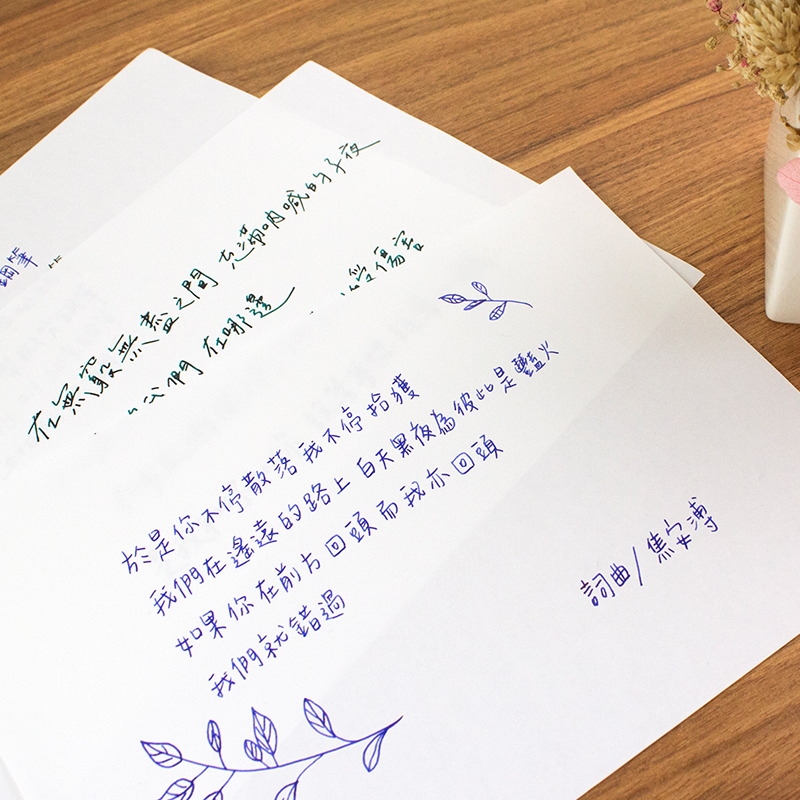 鋼筆
在無窮無盡之間 充滿吶喊的子夜
們 在哪邊 受傷害
於是你不停散落我不停拾獲
我們在遙遠的路上白天黑夜為彼此是豔火
如果你在前方回頭而我亦回頭
我們就錯過
詞曲/焦安溥